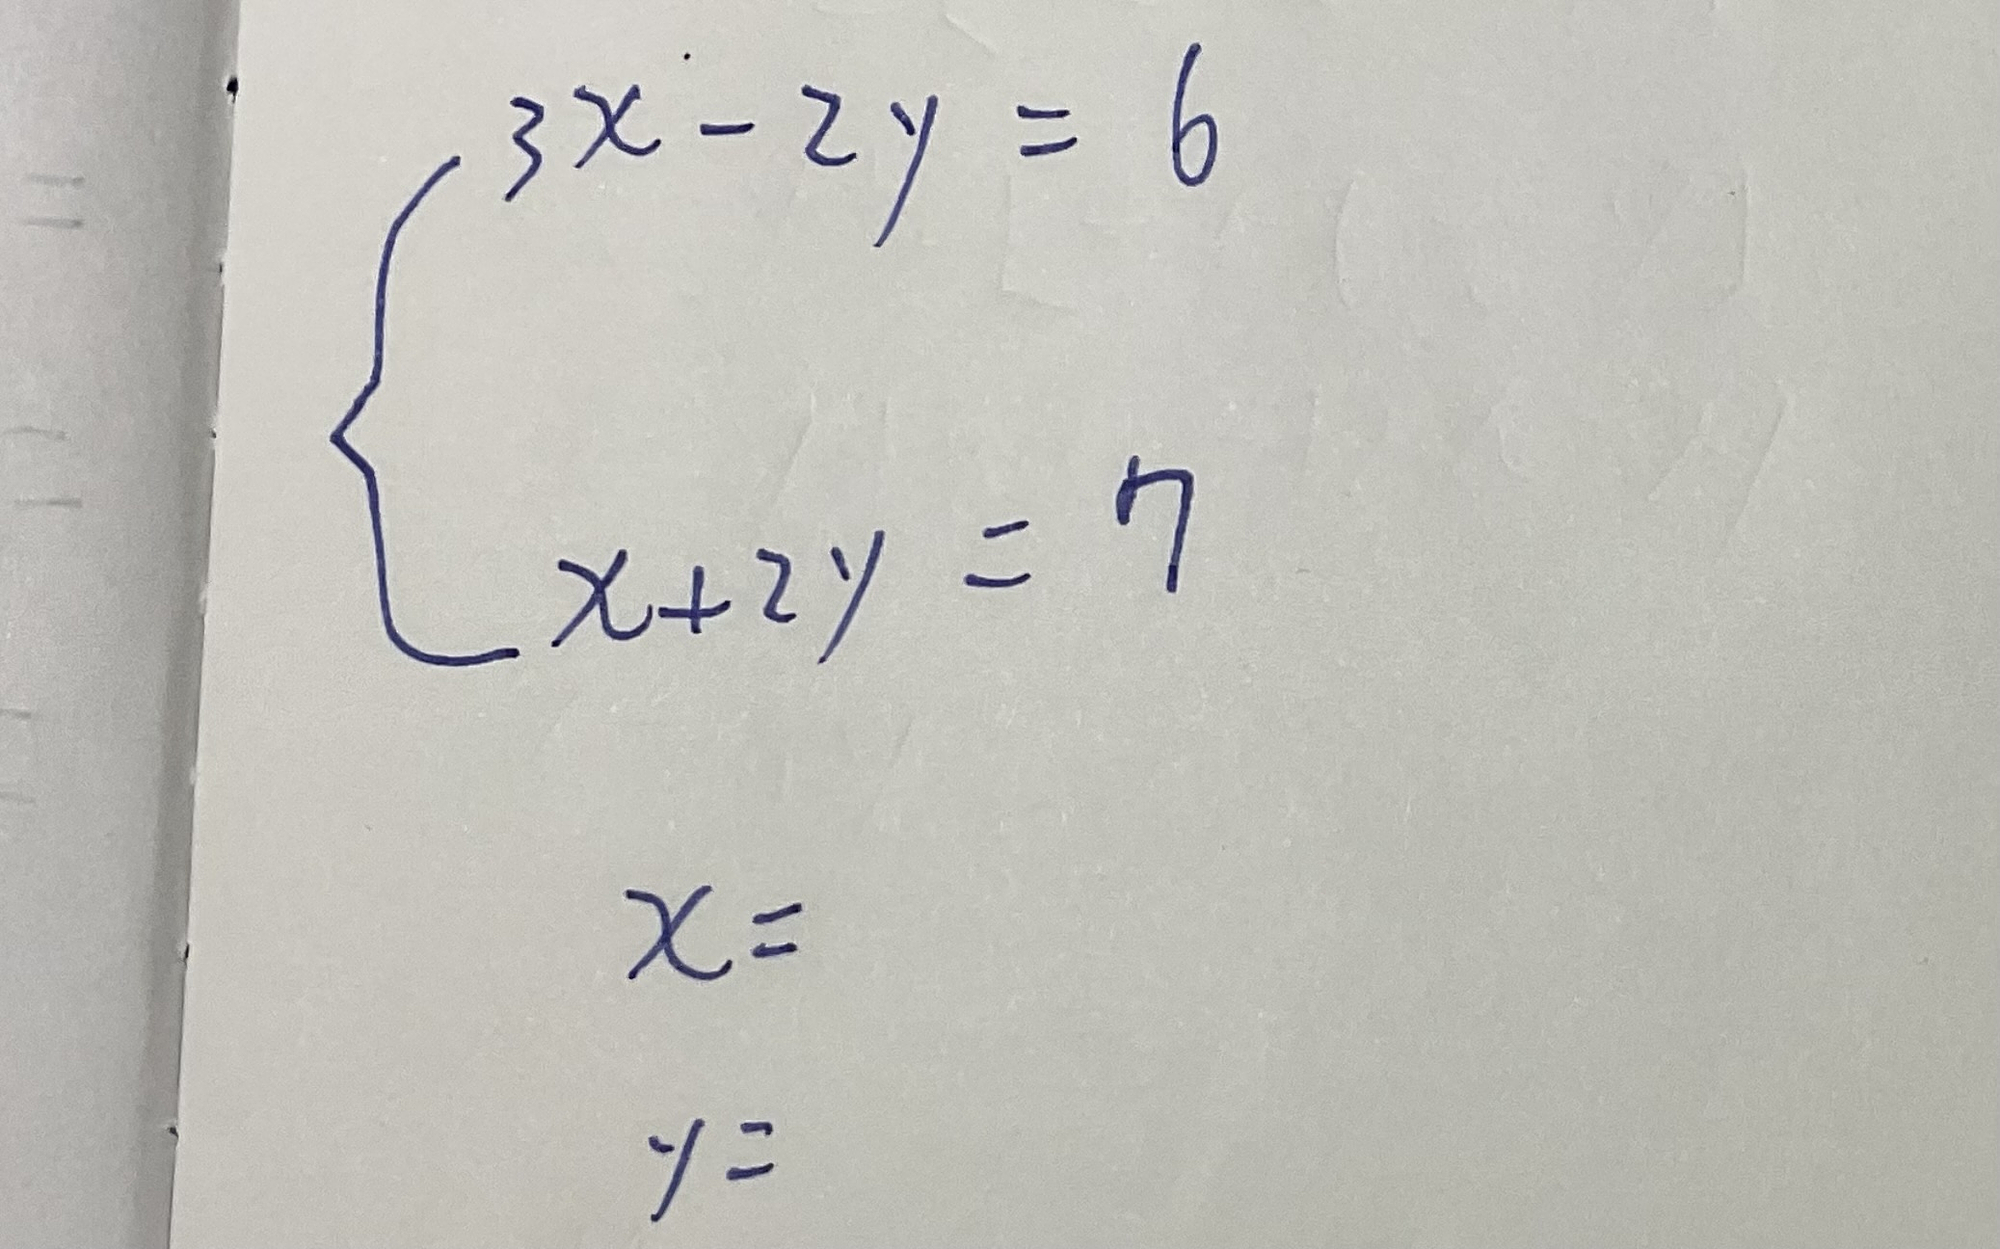 3x - 2y = 6
x + 2y = 7
x =
y =